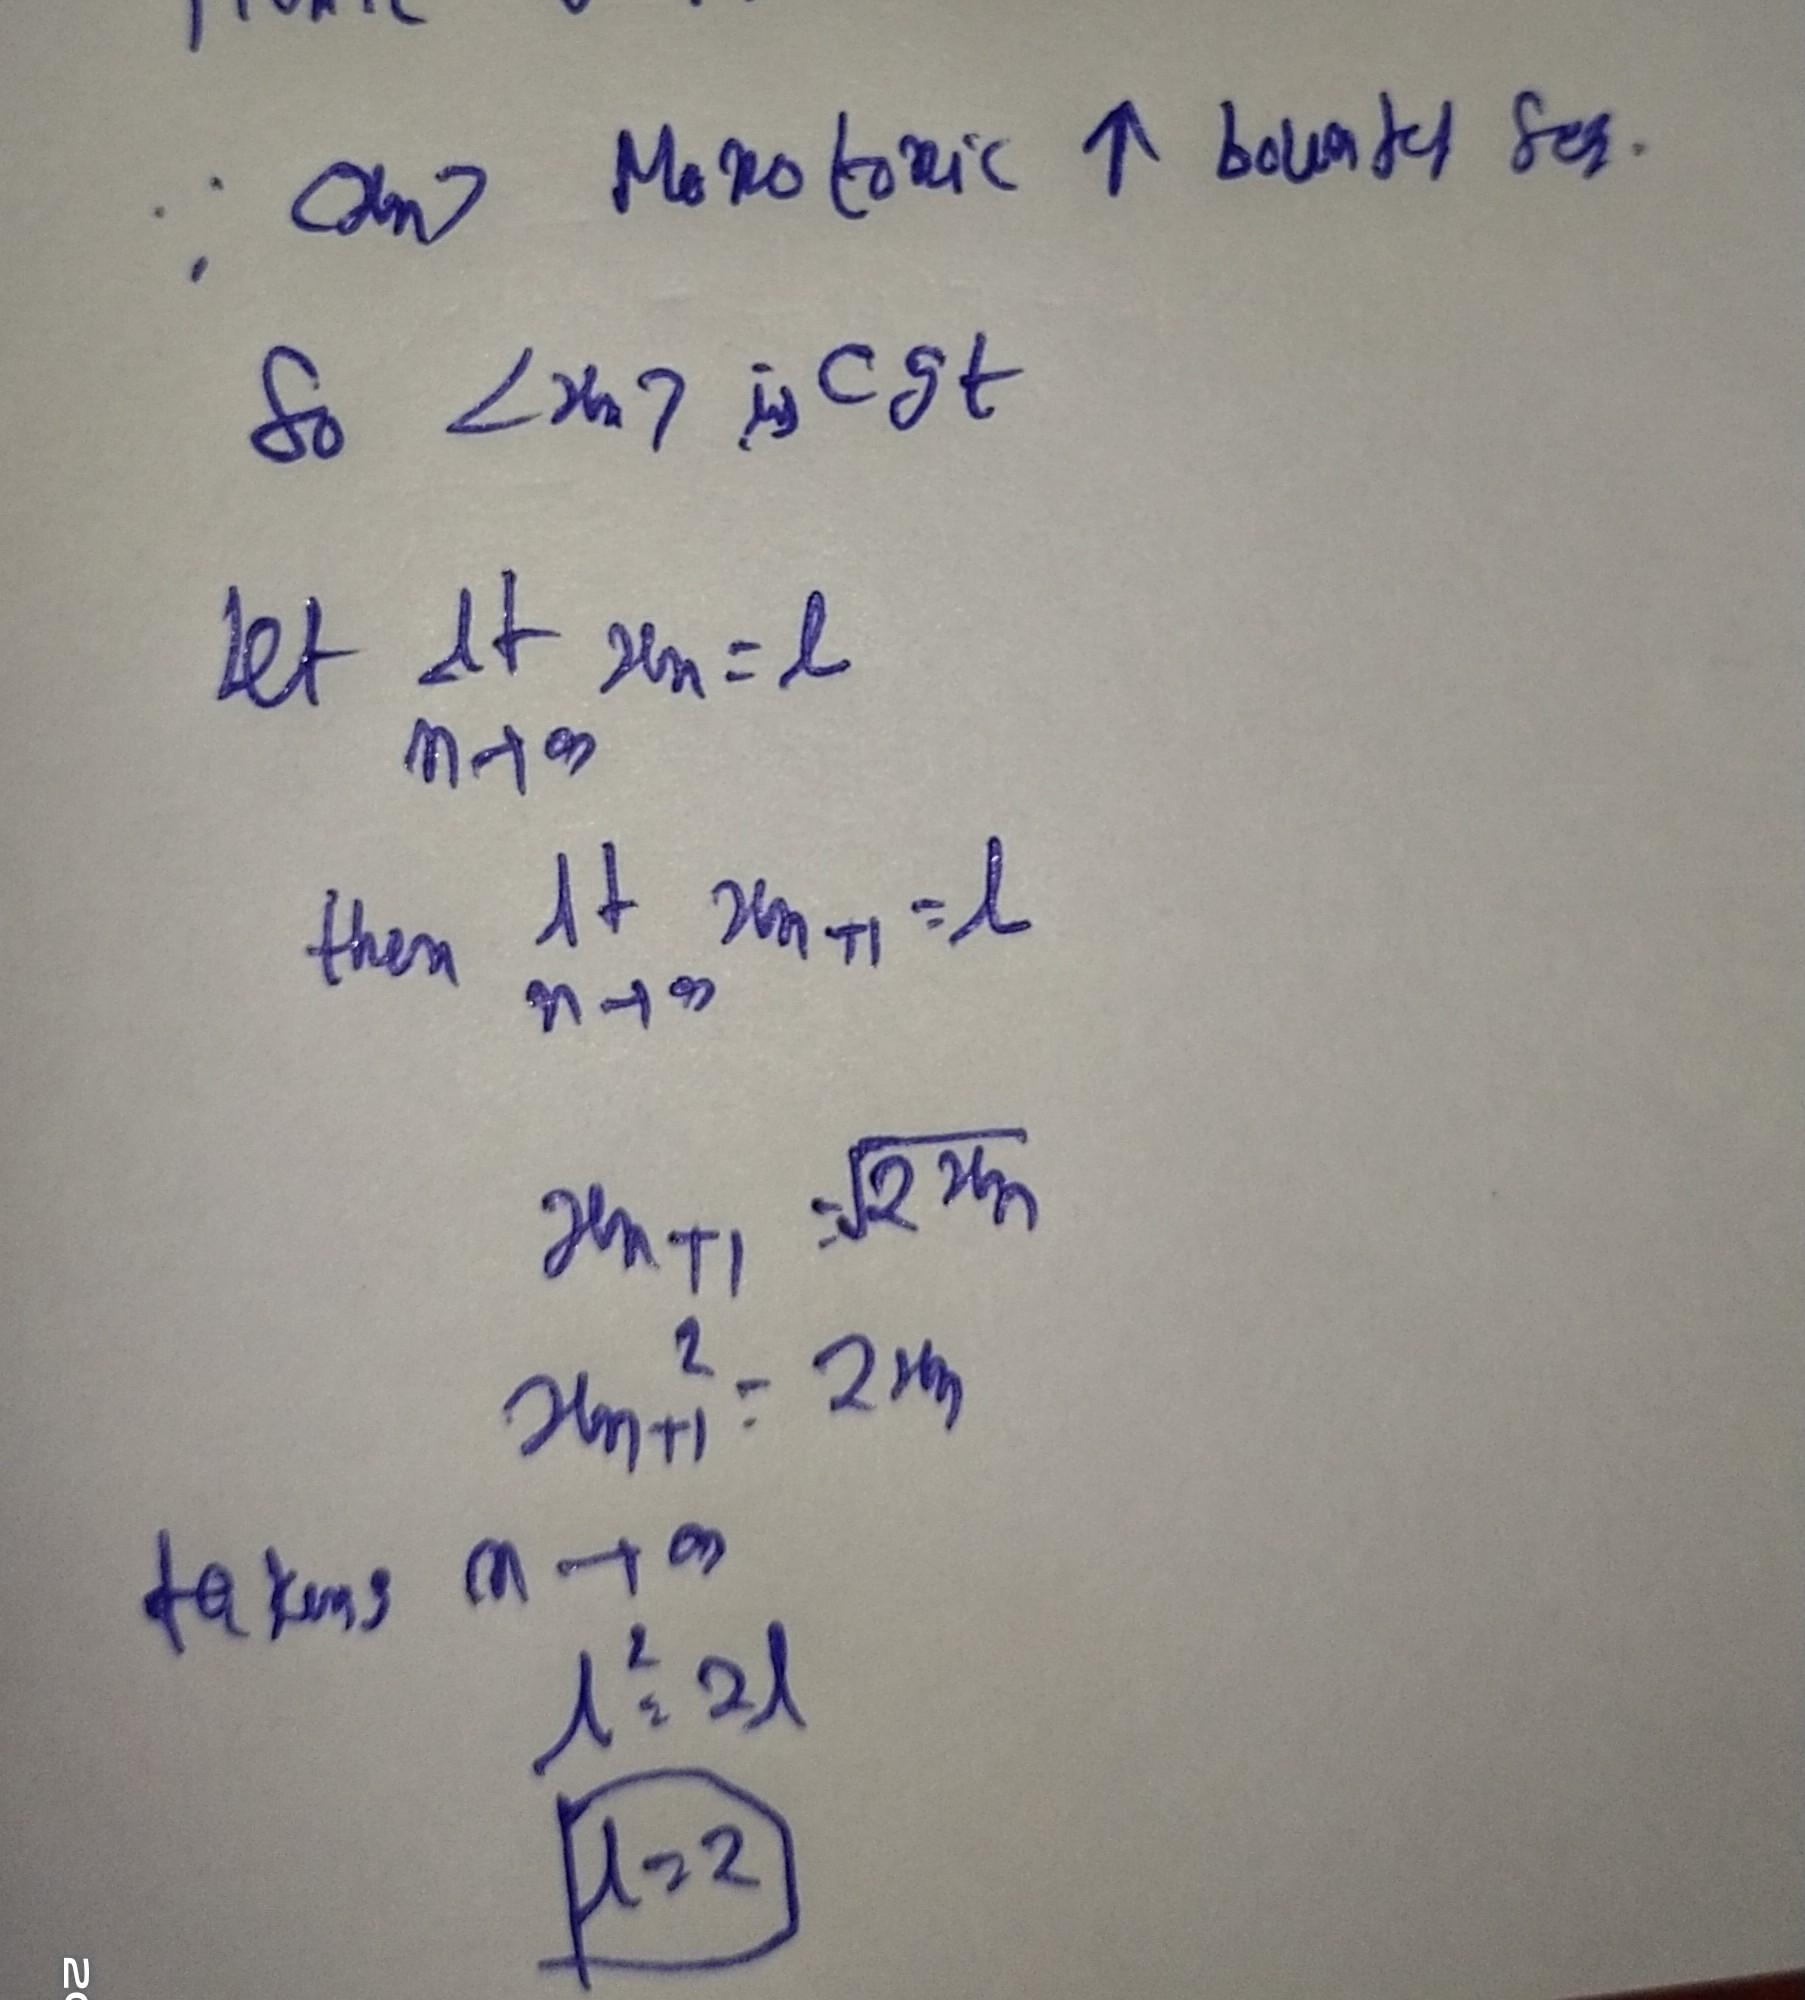 ∵ <xn> Monotonic ↑ bounded seq.
So <xn> is cgt
let lt xn = l
n→∞
then lt xn+1 = l
n→∞
xn+1 = √2xn
xn+1² = 2xn
taking n→∞
l² = 2l
l = 2
20